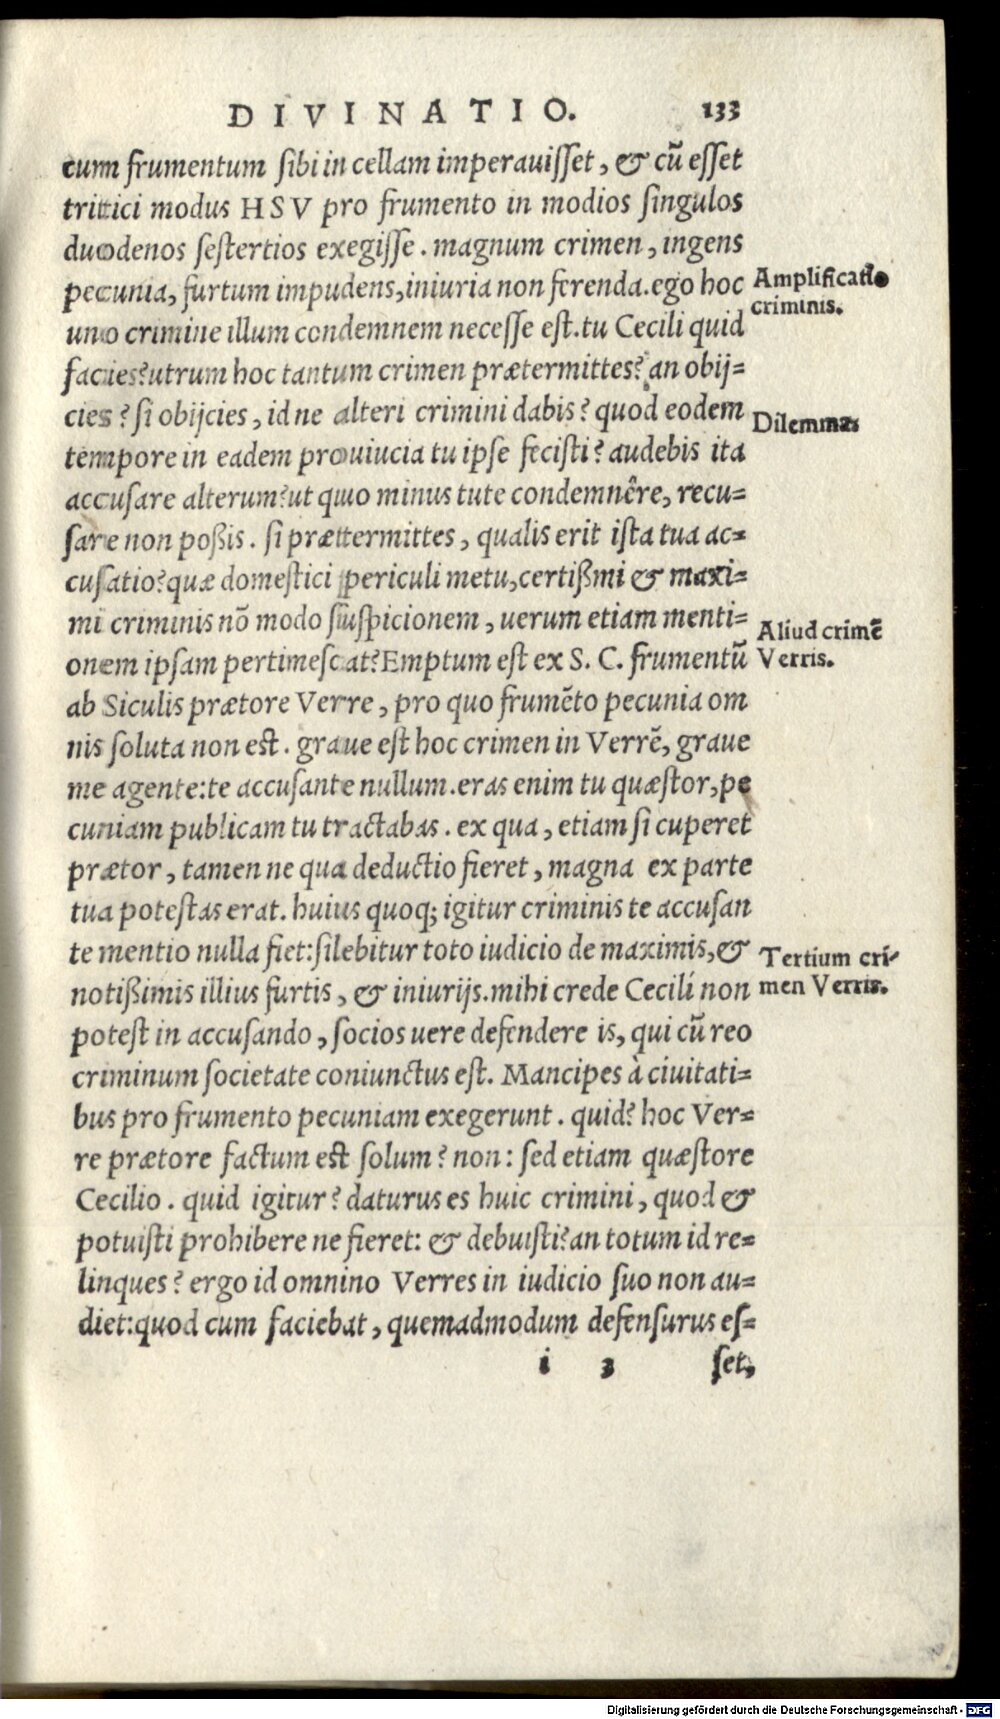 DIVINATIO. 133
cum frumentum sibi in cellam imperauisset, & cũ esset
tritici modus HS V pro frumento in modios singulos
duodenos sestertios exegisse. magnum crimen, ingens
pecunia, furtum impudens, iniuria non ferenda. ego hoc
Amplificatio
criminis.
uno crimine illum condemnem necesse est. tu Cecili quid
facies? utrum hoc tantum crimen prætermittes? an obij=
cies? si obijcies, id ne alteri crimini dabis? quod eodem
Dilemma.
tempore in eadem prouiucia tu ipse fecisti? audebis ita
accusare alterum? ut quo minus tute condemnêre, recu=
sare non poßis. si prætermittes, qualis erit ista tua ac=
cusatio? quæ domestici periculi metu, certißmi & maxi=
mi criminis nõ modo suspicionem, uerum etiam menti=
Aliud crimẽ
Verris.
onem ipsam pertimescat? Emptum est ex S. C. frumentũ
ab Siculis prætore Verre, pro quo frumẽto pecunia om
nis soluta non est. graue est hoc crimen in Verrẽ, graue
me agente: te accusante nullum. eras enim tu quæstor, pe
cuniam publicam tu tractabas. ex qua, etiam si cuperet
prætor, tamen ne qua deductio fieret, magna ex parte
tua potestas erat. huius quoq; igitur criminis te accusan
te mentio nulla fiet: silebitur toto iudicio de maximis, &
Tertium cri-
men Verris.
notißimis illius furtis, & iniurijs. mihi crede Cecilí non
potest in accusando, socios uere defendere is, qui cũ reo
criminum societate coniunctus est. Mancipes à ciuitati=
bus pro frumento pecuniam exegerunt. quid? hoc Ver=
re prætore factum est solum? non: sed etiam quæstore
Cecilio. quid igitur? daturus es huic crimini, quod &
potuisti prohibere ne fieret: & debuisti? an totum id re=
linques? ergo id omnino Verres in iudicio suo non au=
diet: quod cum faciebat, quemadmodum defensurus es=
i 3 set,
Digitalisierung gefördert durch die Deutsche Forschungsgemeinschaft - DFG